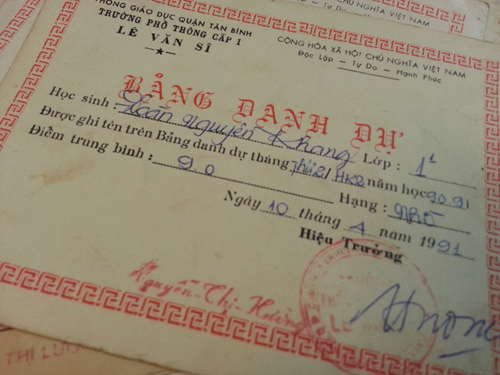 PHÒNG GIÁO DỤC QUẬN TÂN BÌNH
TRƯỜNG PHỔ THÔNG CẤP I
LÊ VĂN SĨ
CỘNG HÒA XÃ HỘI CHỦ NGHĨA VIỆT NAM
Độc Lập - Tự Do - Hạnh Phúc
BẢNG DANH DỰ
Học sinh: Nguyên Khang Lớp: 1
Được ghi tên trên Bảng danh dự tháng Thứ 2 HK2 năm học 90.91
Điểm trung bình: 9.0 Hạng: Nhì
Ngày 10 tháng 4 năm 1991
Hiệu Trưởng
Nguyễn Thị
THỊ